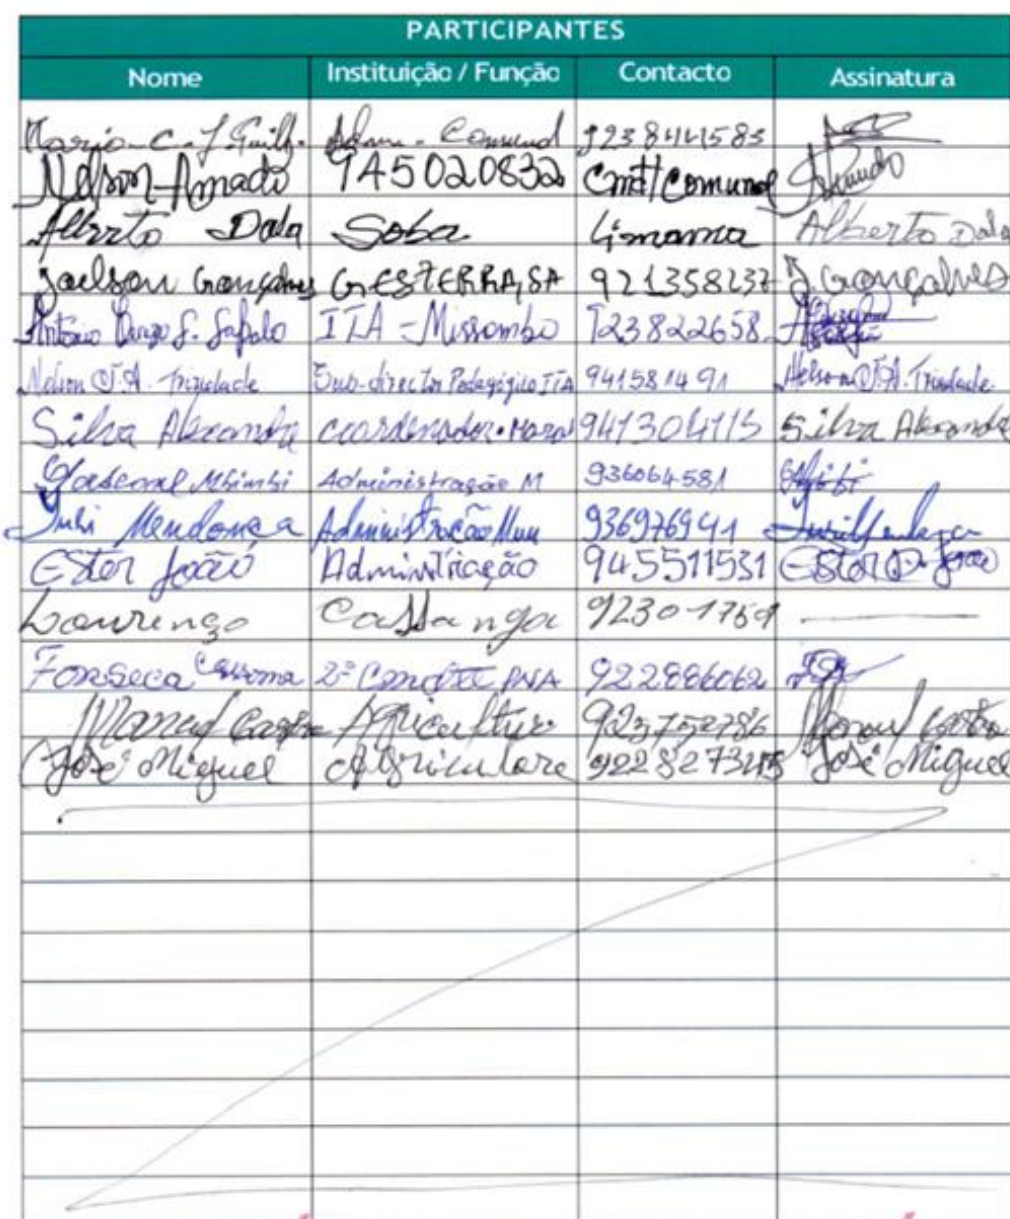 PARTICIPANTES
Nome Instituição / Função Contacto Assinatura
Mario-C.-J. Guilh. Adm. - Comunal 923844583
Nelson Amado 945020832 Cmdt Comunal Amado
Alberto Dala Soba Limama Alberto Dala
Joelson Gonçalves GESTERRA, SA 921358237 J. Gonçalves
António S. Safalo ITA - Missombo 923822658
Nelson J.A. Trindade Sub-director Pedagógico ITA 941581491 Nelson J.A. Trindade
Silva Alexandre coordenador 941304115 Silva Alexandre
Mbimbi Administração M 936064581
Yuri Mendonça Administração Mun 936976941 Yuri Mendonça
Ester João Administração 945511531 Ester D. João
Lourenço Cassanga 92301769
Fonseca 2º Cmdte PNA 922886062
Manuel Castro Agricultur 923752786 Manuel Castro
José Miguel Agriculare José Miguel